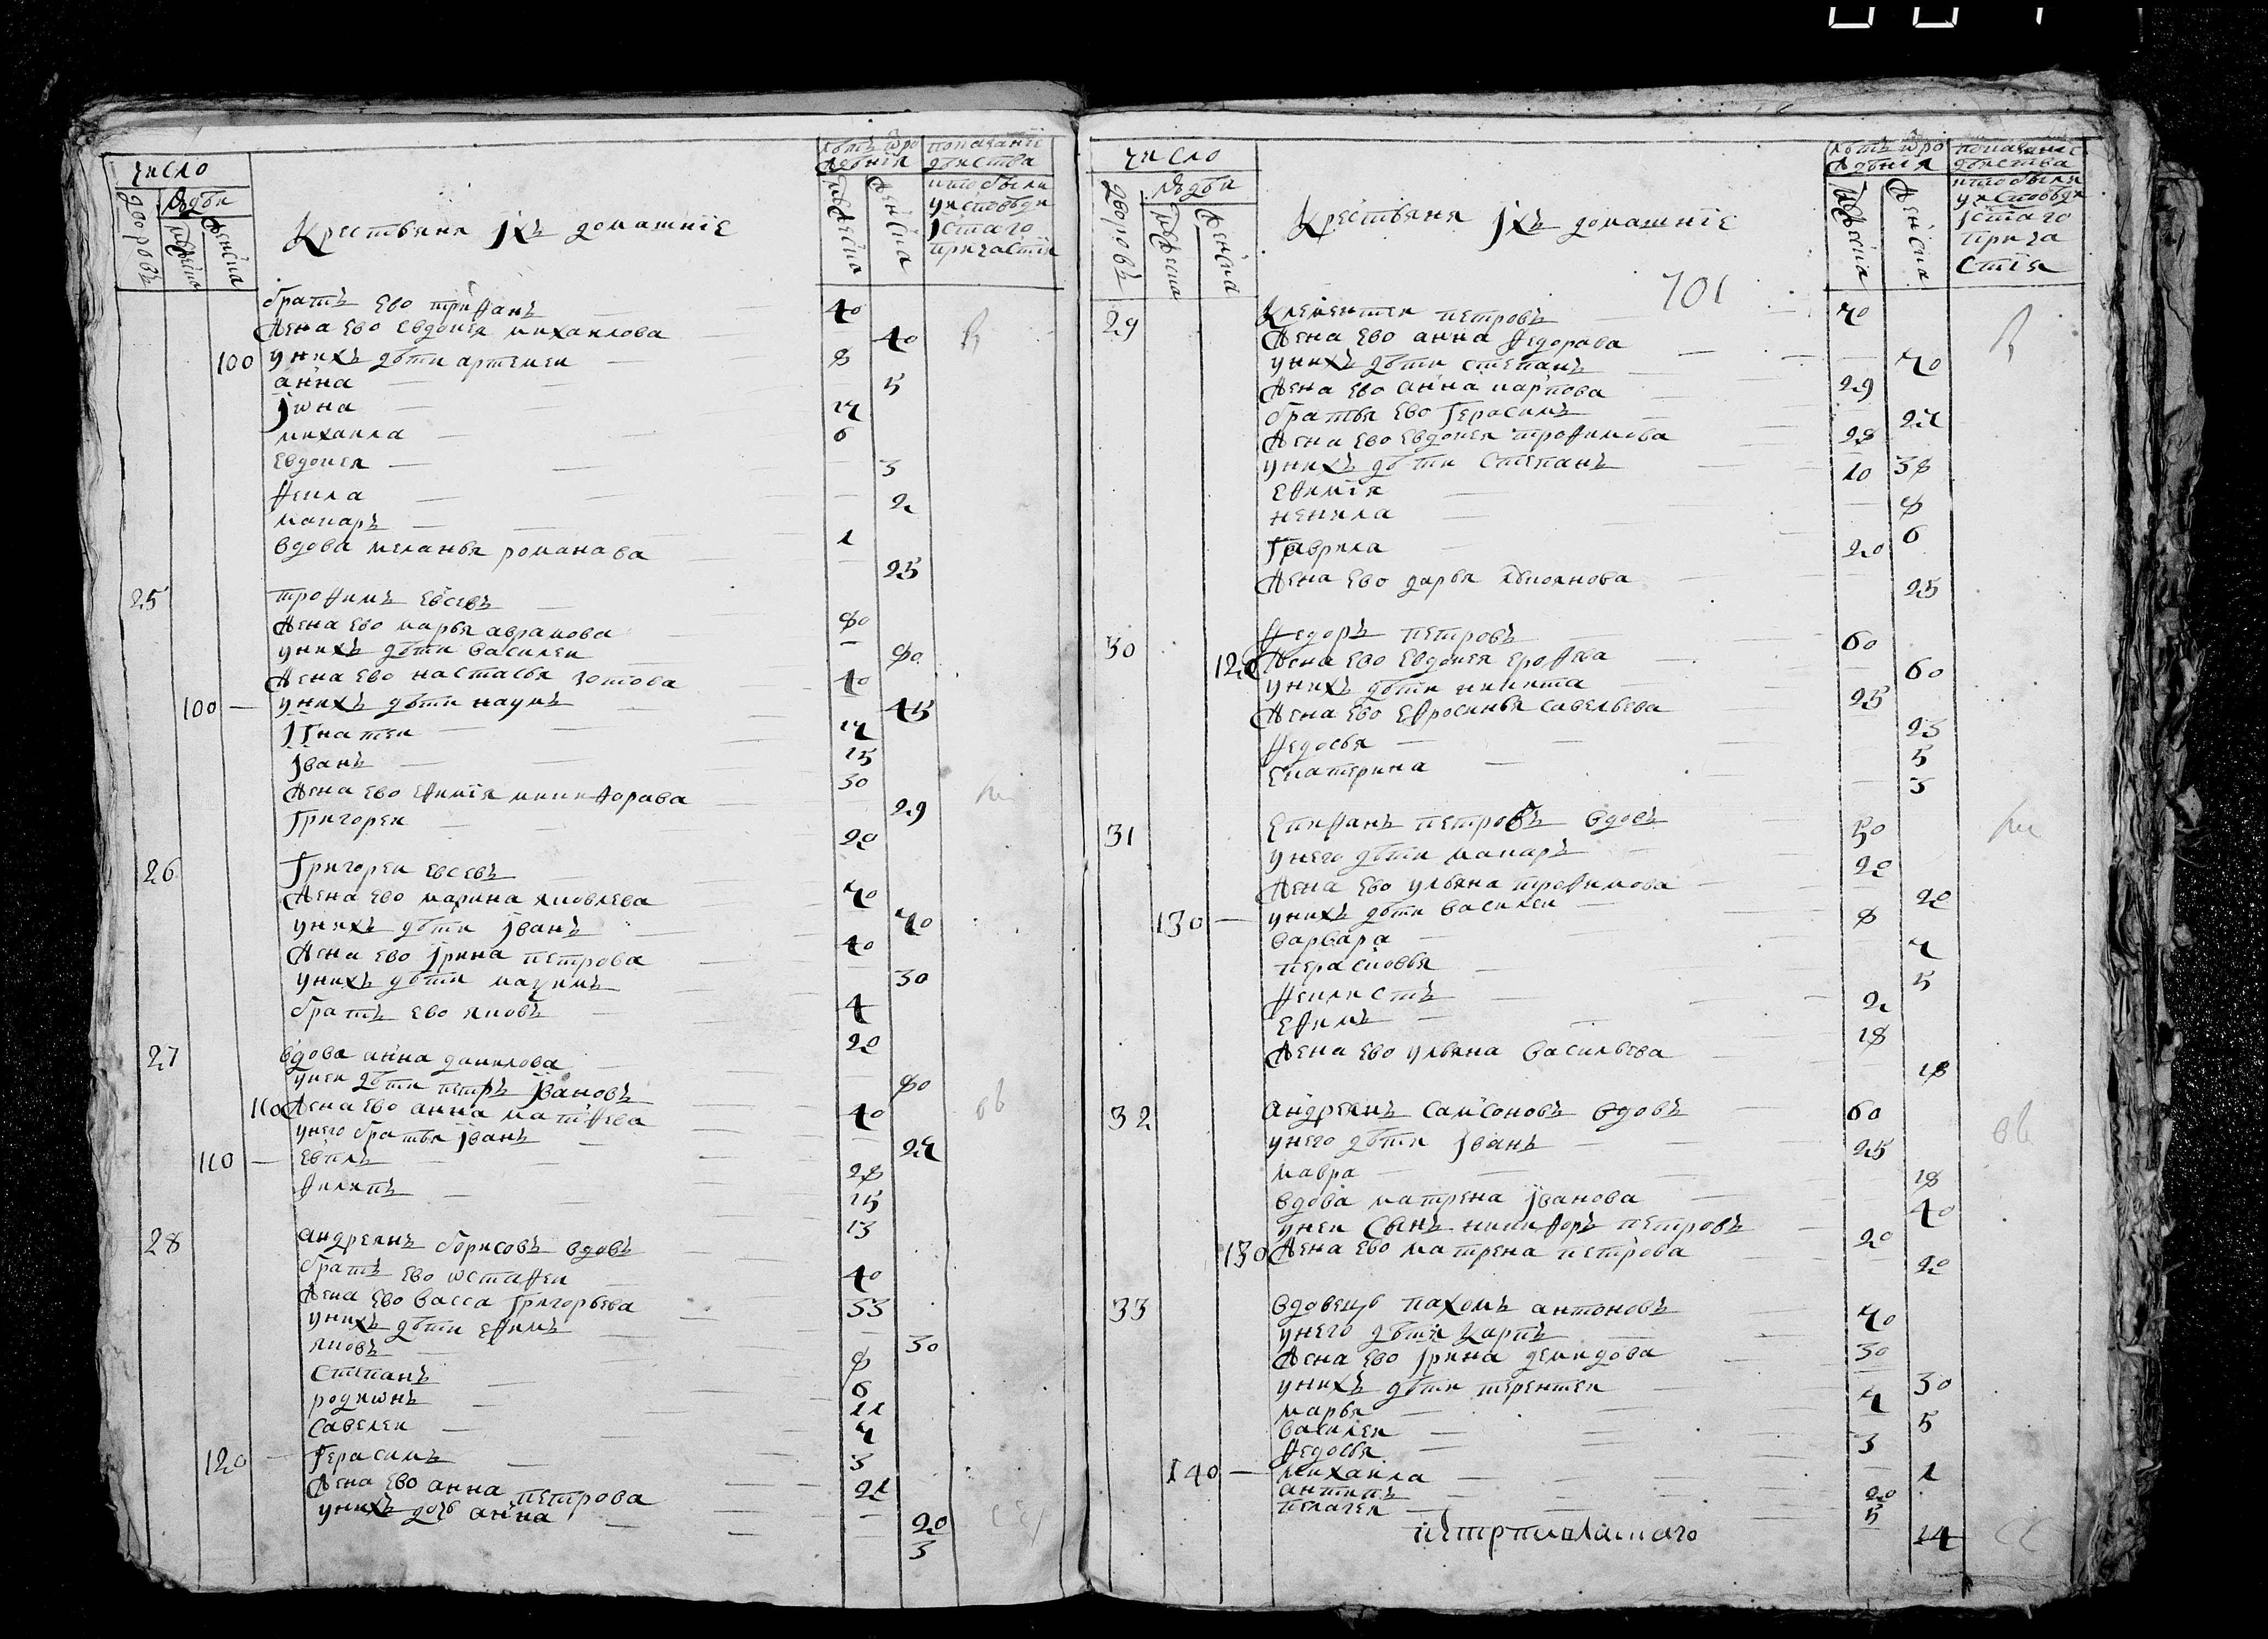 число
дворовъ
людѣи
мужеска
женска
Крестьяня іхъ домашние
лѣтъ ѿро
жения
мужеска
женска
показание
дѣиства
кто были
уисповѣди
істаго
причастия
братъ ево трифанъ 40
жена ево Евдокея михаилова 40
100 унихъ дѣти артемеи 8
анна 5
јѡна 17
михаила 6
Евдокея 3
фекла 2
макаръ 1
вдова меланья романава 25
25 трофимъ Евсевъ 80
жена ево марья аврамова 80
унихъ дѣти василеи 40
жена ево настасья зотова 45
100 унихъ дѣти наумъ 17
Јгнатеи 15
јванъ 30
жена ево Ефимия никифорава 29
Григореи 20
26 Григореи Евсевъ 70
жена ево марина яковлева 70
унихъ дѣти јванъ 40
жена ево јрина петрова 30
унихъ дѣти мазимъ 4
братъ ево яковъ 20
27 вдова анна данилова 80
унеи дѣти петръ јвановъ 40
110 жена ево анна матфева 27
унего братья јванъ 28
110 Евплъ 15
филипъ 13
28 андреянъ борисовъ вдовъ 40
братъ ево ѡстафеи 33
жена ево васса Григорьева 30
унихъ дѣти Ефимъ 8
яковъ 6
степанъ 11
родиѡнъ 7
савелеи 3
120 Герасимъ 21
жена ево анна петрова 20
унихъ дочь анна 3
число
дворовъ
людѣи
мужеска
женска
Крестьяня јхъ домашние
лѣтъ ѿро
жения
мужеска
женска
показание
дѣиства
кто были
уисповѣди
јстаго
прича
стия
701
29 Клементеи петровъ 70
жена ево анна федорава 70
унихъ дѣти степанъ 29
жена ево анна карпова 27
братья ево Герасимъ 28
жена ево Евдокея трофимова 38
унихъ дѣти степанъ 10
Ефимия 8
ненила 6
Гаврила 20
жена ево дарья лукоянова 25
30 федоръ петровъ 60
120 жена ево Евдокея Ерофева 60
унихъ дѣти никита 25
жена ево Ефросинья савельева 23
федосья 5
Екатерина 3
31 Епифанъ петровъ вдовъ 50
унего дѣти макаръ 20
жена ево ульяна трофимова 20
130 унихъ дѣти василеи 8
варвара 7
перасковья 5
феклистъ 2
Ефимъ 18
жена ево ульяна васильева 18
32 андреянъ самсоновъ вдовъ 60
унего дѣти јванъ 25
мавра 18
вдова матрена јванова 40
унеи сынъ никифоръ петровъ 20
130 жена ево матрена петрова 20
33 вдовецъ пахомъ антоновъ 70
унего дѣти карпъ 30
жена ево јрина демидова 30
унихъ дѣти терентеи 7
марья 5
василеи 3
федосья 1
140 михаила 20
антипъ 5
пелагея 14